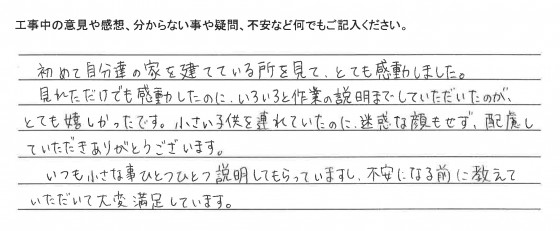 工事中の意見や感想、分からない事や疑問、不安など何でもご記入ください。
初めて自分達の家を建てている所を見て、とても感動しました。
見れただけでも感動したのに、いろいろと作業の説明までしていただいたのが、
とても嬉しかったです。小さい子供を連れていたのに、迷惑な顔もせず、配慮し
ていただきありがとうございます。
いつも小さな事ひとつひとつ説明してもらっていますし、不安になる前に教えて
いただいて大変満足しています。